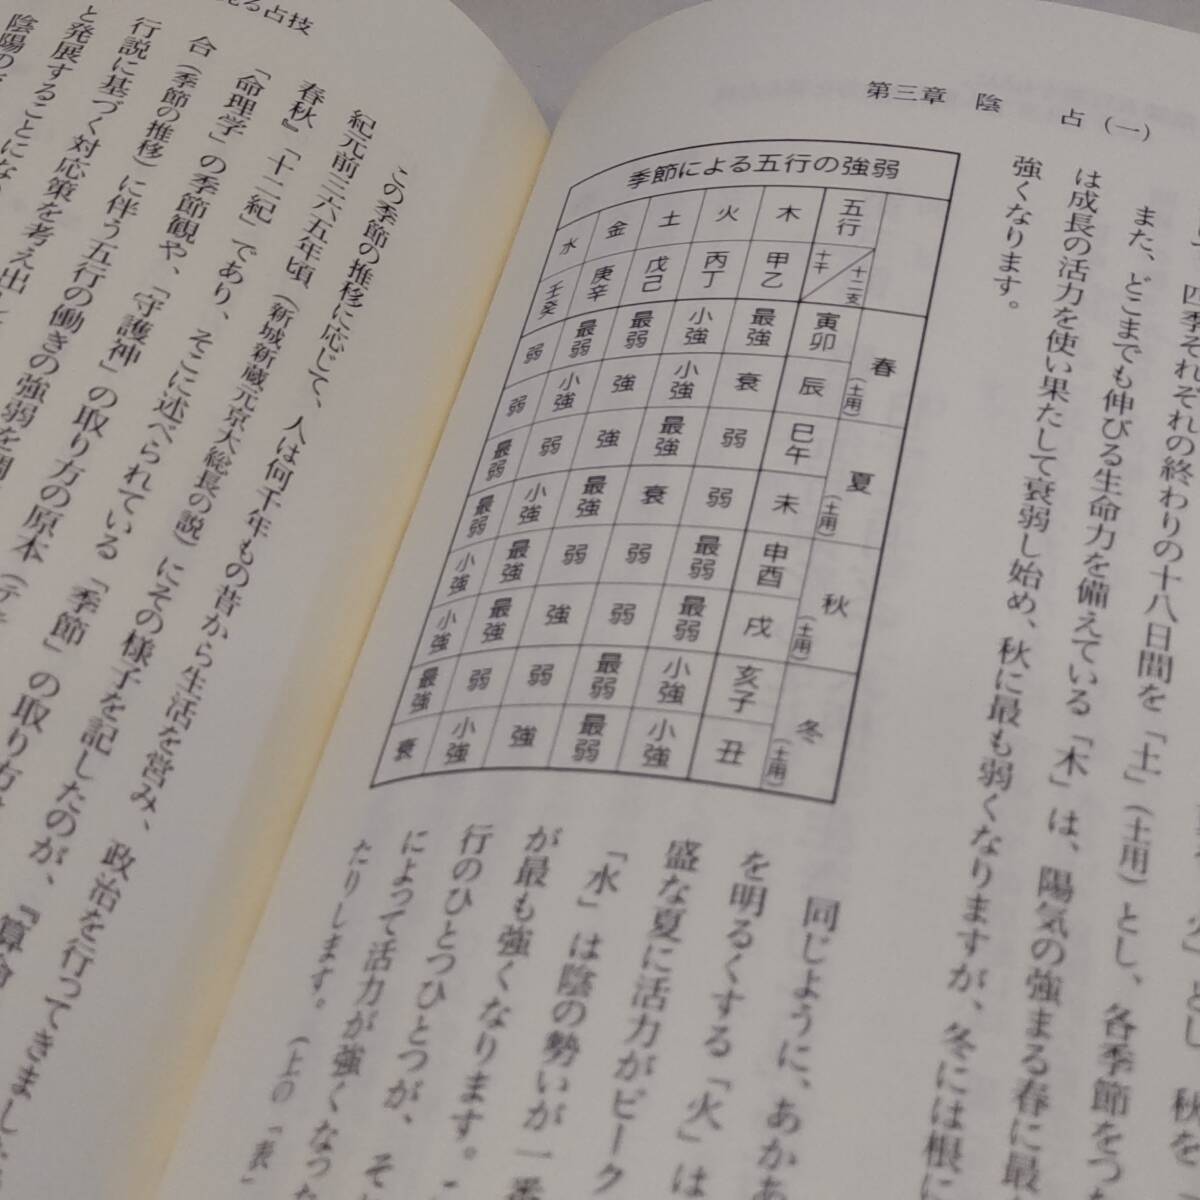 第三章　陰　占（一）
火」とし　秋を
四季それぞれの終わりの十八日間を「土」（土用）とし、各季節をつ
また、どこまでも伸びる生命力を備えている「木」は、陽気の強まる春に最
は成長の活力を使い果たして衰弱し始め、秋に最も弱くなりますが、冬には根に
強くなります。
季節による五行の強弱
水 金 土 火 木 五行
壬癸 庚辛 戊己 丙丁 甲乙 十干 十二支
弱 最弱 最弱 小強 最強 寅卯 春
弱 小強 強 小強 衰 辰 （土用）
最弱 弱 強 最強 弱 巳午 夏
最弱 小強 最強 衰 弱 未 （土用）
小強 最強 弱 弱 最弱 申酉 秋
小強 最強 強 弱 最弱 戌 （土用）
最強 弱 弱 最弱 小強 亥子 冬
衰 小強 強 最弱 小強 丑 （土用）
同じように、あかあ
を明るくする「火」は
盛な夏に活力がピーク
「水」は陰の勢いが一番
が最も強くなります。こ
行のひとつひとつが、そ
によって活力が強くなっ
たりします。（上の「表」
る占技
この季節の推移に応じて、人は何千年もの昔から生活を営み、政治を行ってきました
紀元前三六五年頃（新城新蔵元京大総長の説）にその様子を記したのが、『算命
春秋』「十二紀」であり、そこに述べられている「季節」の取り方
「命理学」の季節観や、「守護神」の取り方の原本（テキ
合（季節の推移）に伴う五行の働きの強弱を
行説に基づく対応策を考え出し
と発展することにな
陰陽の